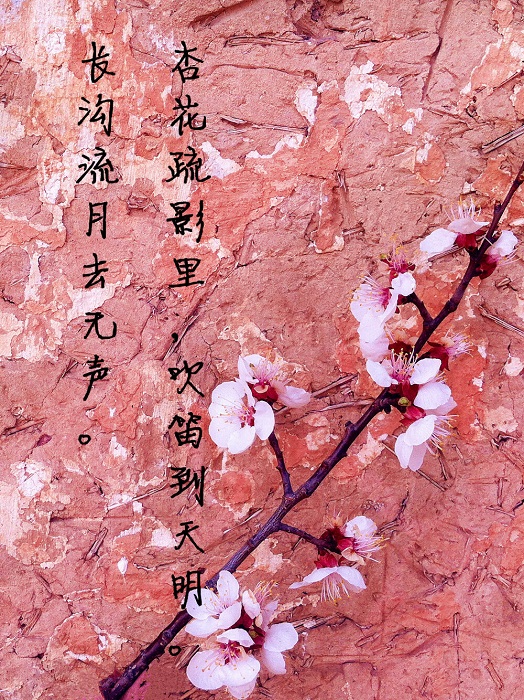 长沟流月去无声。
杏花疏影里，吹笛到天明。